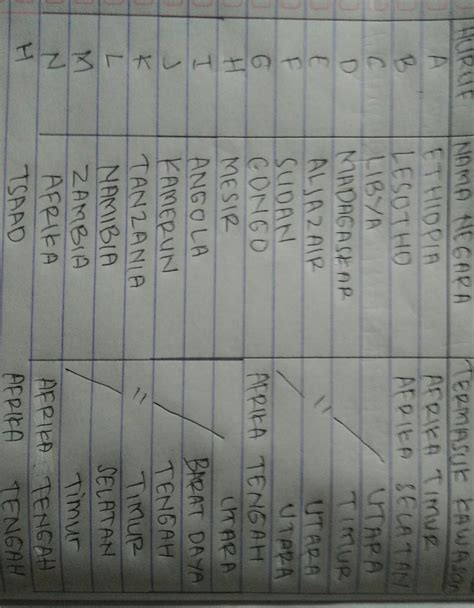 HURUF NAMA NEGARA TERMASUK KAWASAN
A ETHIOPIA AFRIKA TIMUR
B LESOTHO AFRIKA SELATAN
C LIBYA UTARA
D MADAGASKAR TIMUR
E ALJAZAIR " UTARA
F SUDAN UTARA
G CONGO AFRIKA TENGAH
H MESIR UTARA
I ANGOLA BARAT DAYA
J KAMERUN TENGAH
K TANZANIA " TIMUR
L NAMIBIA SELATAN
M ZAMBIA TIMUR
N AFRIKA AFRIKA TENGAH
H TSAAD AFRIKA TENGAH